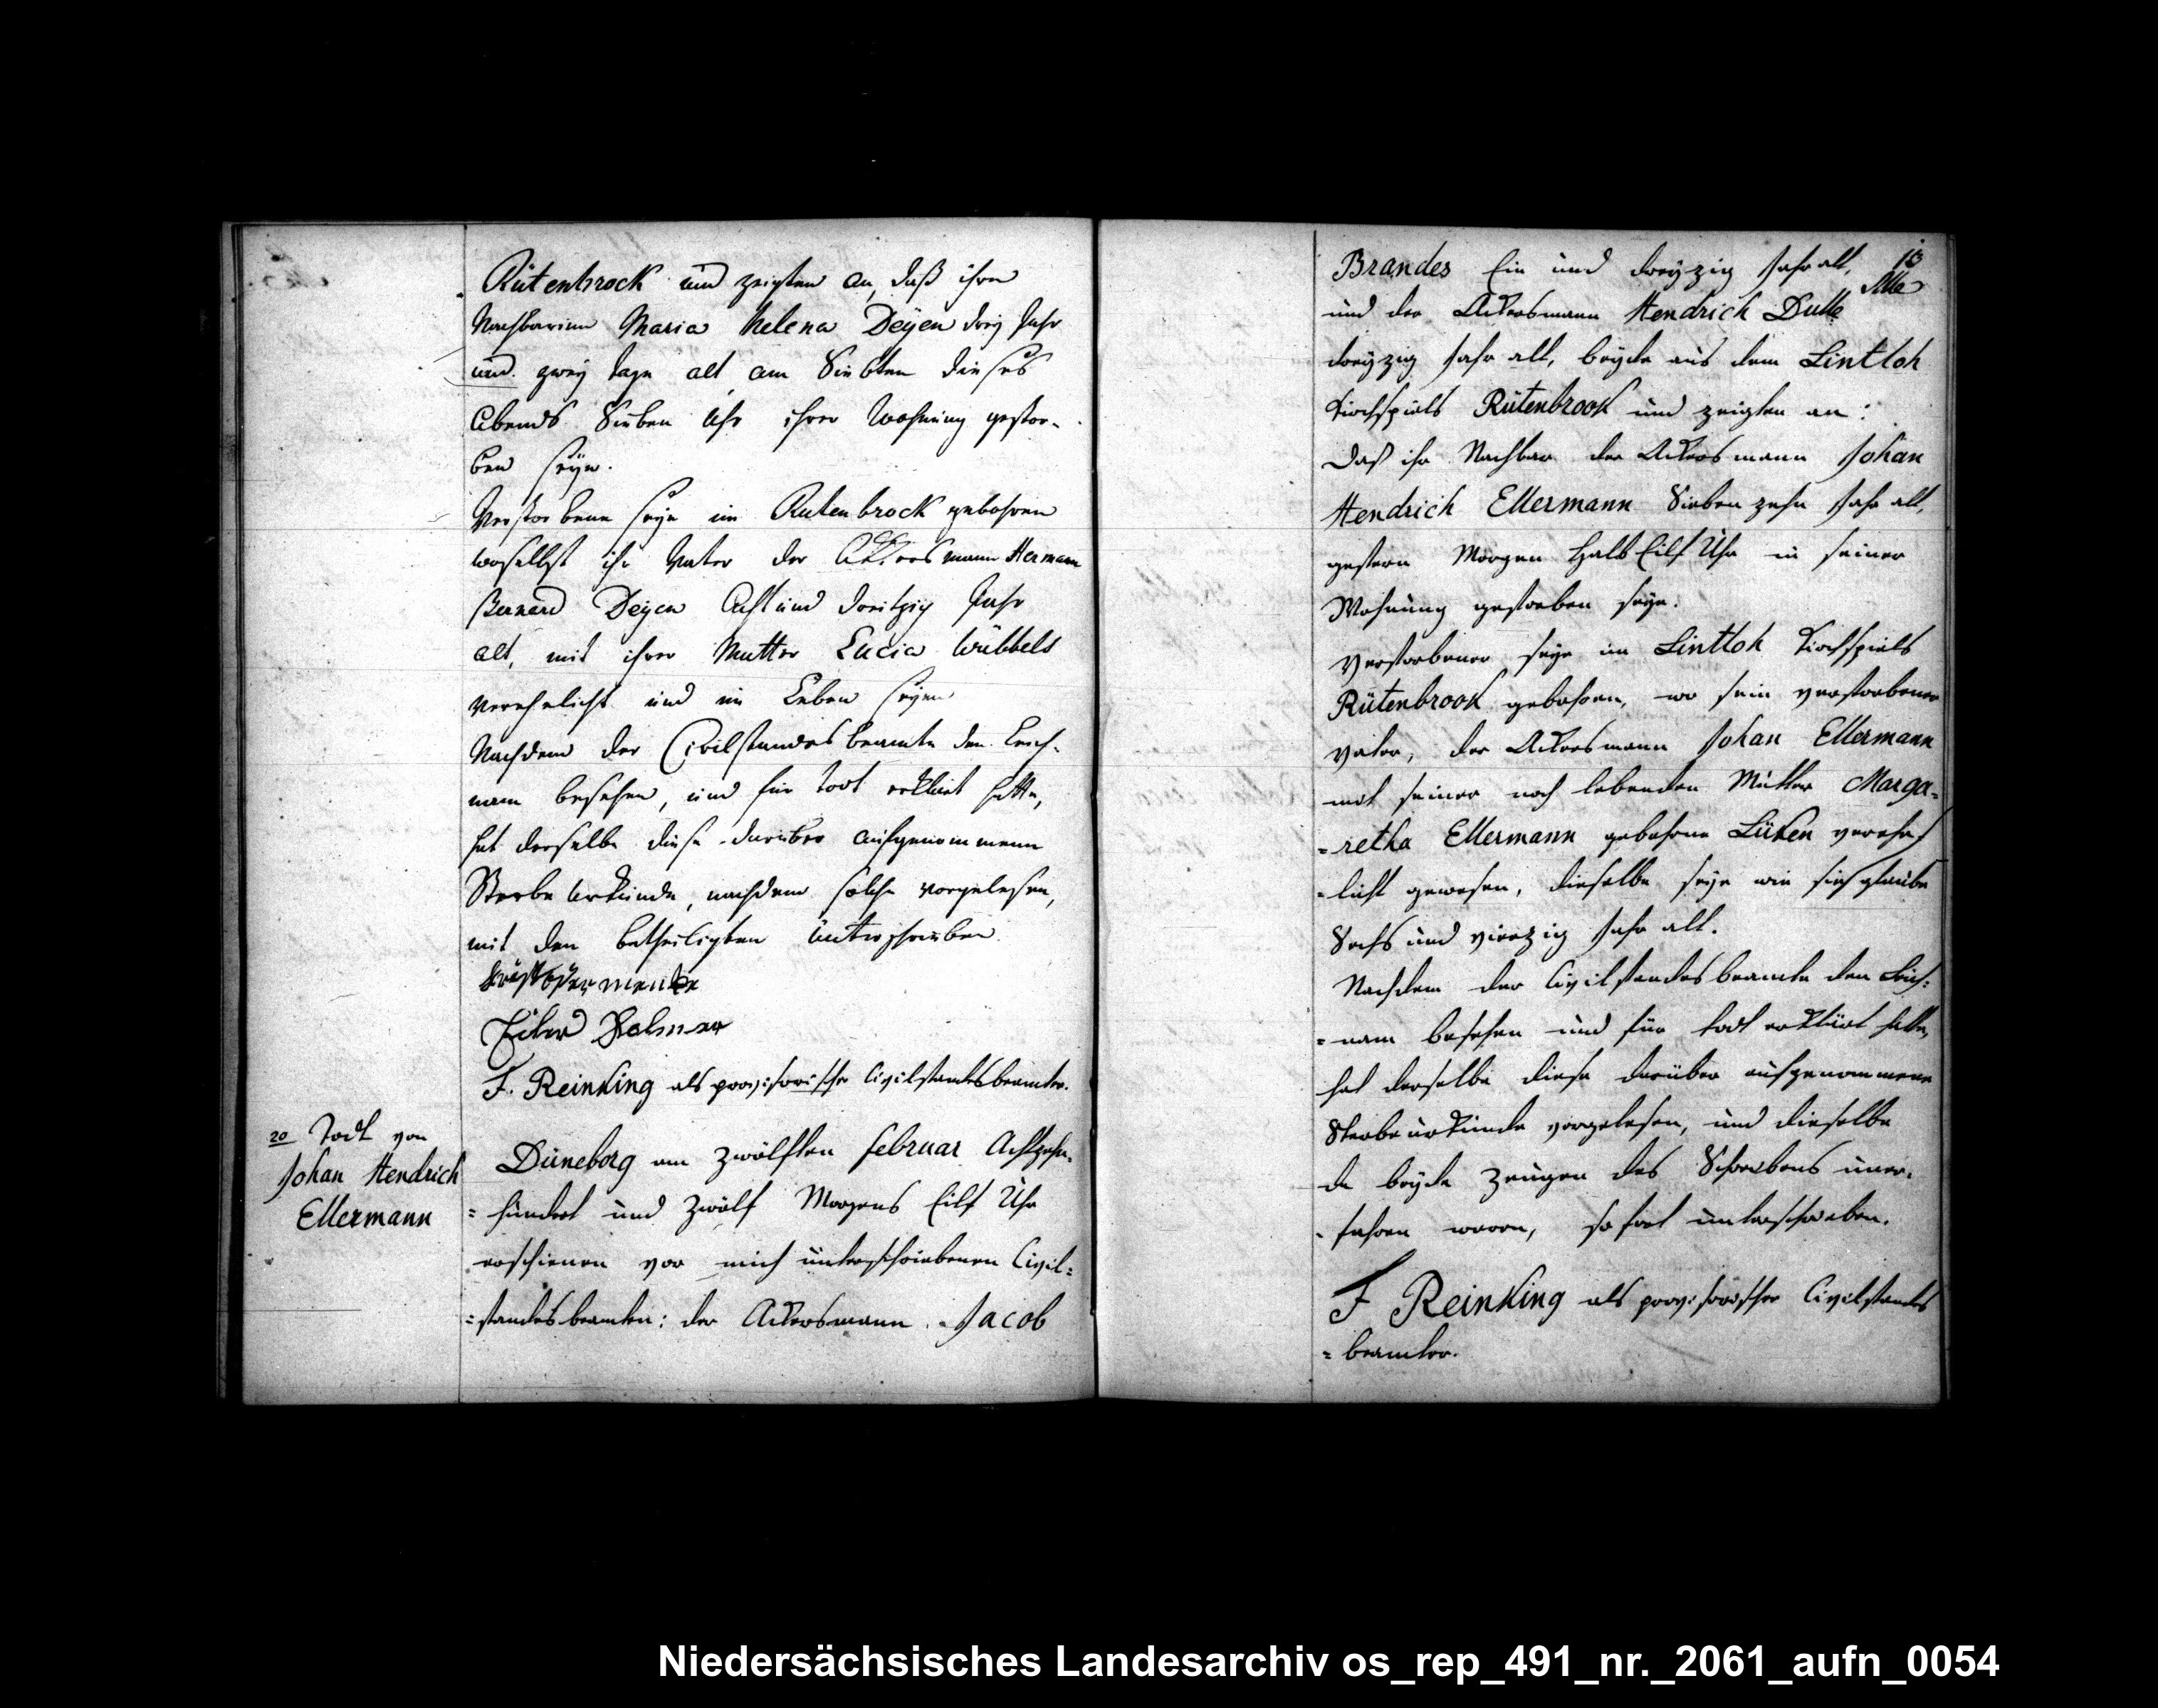 Rütenbrock und zeigten an, daß ihre
Nachbarinn Maria Helena Deyen drey Jahr
und zwey Tage alt, am Siebten dieses
Abends Sieben Uhr ihrer Wohnung gestor-
ben seye.
Verstorbene seye im Rutenbrock gebohren
woselbst ihr Vater der Ackersmann Hermann
Bernard Deyen Acht und dreitzig Jahr
alt, mit ihrer Mutter Lucia Wübbels
verehelicht und im Leben seyen
Nachdem der Civilstandesbeamte den Leich-
nam besehen, und für todt erklärt hatte,
hat derselbe diese darüber aufgenommene
Sterbe Urkunde, nachdem solche vorgelesen,
mit den betheiligten unterschrieben.
F. Reinking als provisorischer Civilstandesbeamter.
20 Todt von
Johan Hendrich
Ellermann
Düneborg am zwölften februar Achtzehn-
=hundert und zwölf Morgens Eilf Uhr
erschienen vor mich unterschriebenen Civil=
=standesbeamten: der Ackersmann Jacob
13
Brandes Ein und dreyzig Jahr alt,
und der Ackersmann Hendrich Dulle
dreyzig Jahr alt, beyde aus dem Lintloh
Kirchspiels Rütenbrook und zeigten an:
Daß ihr Nachbar der Ackersmann Johan
Hendrich Ellermann Sieben zehn Jahr alt,
gestern Morgen Halb Eilf Uhr in seiner
Wohnung gestorben seye.
Verstorbener seye im Lintloh Kirchspiels
Rütenbrook gebohren, wo sein verstorbener
Vater, der Ackersmann Johan Ellermann
mit seiner noch lebenden Mutter Marga=
=retha Ellermann gebohrne Lüken vereh=
=licht gewesen, dieselbe seye wie sie glaube
Sechs und vierzig Jahr alt.
Nachdem der Civilstandesbeamte den Leich=
=nam besehen und für todt erklärt hatte,
hat derselbe diese darüber aufgenommene
Sterbeurkunde vorgelesen, und dieselbe
da beyde Zeugen des Schreibens uner-
-fahren waren, sofort unterschrieben.
F Reinking als provisorischer Civilstandes
=beamter.
Niedersächsisches Landesarchiv os_rep_491_nr._2061_aufn_0054